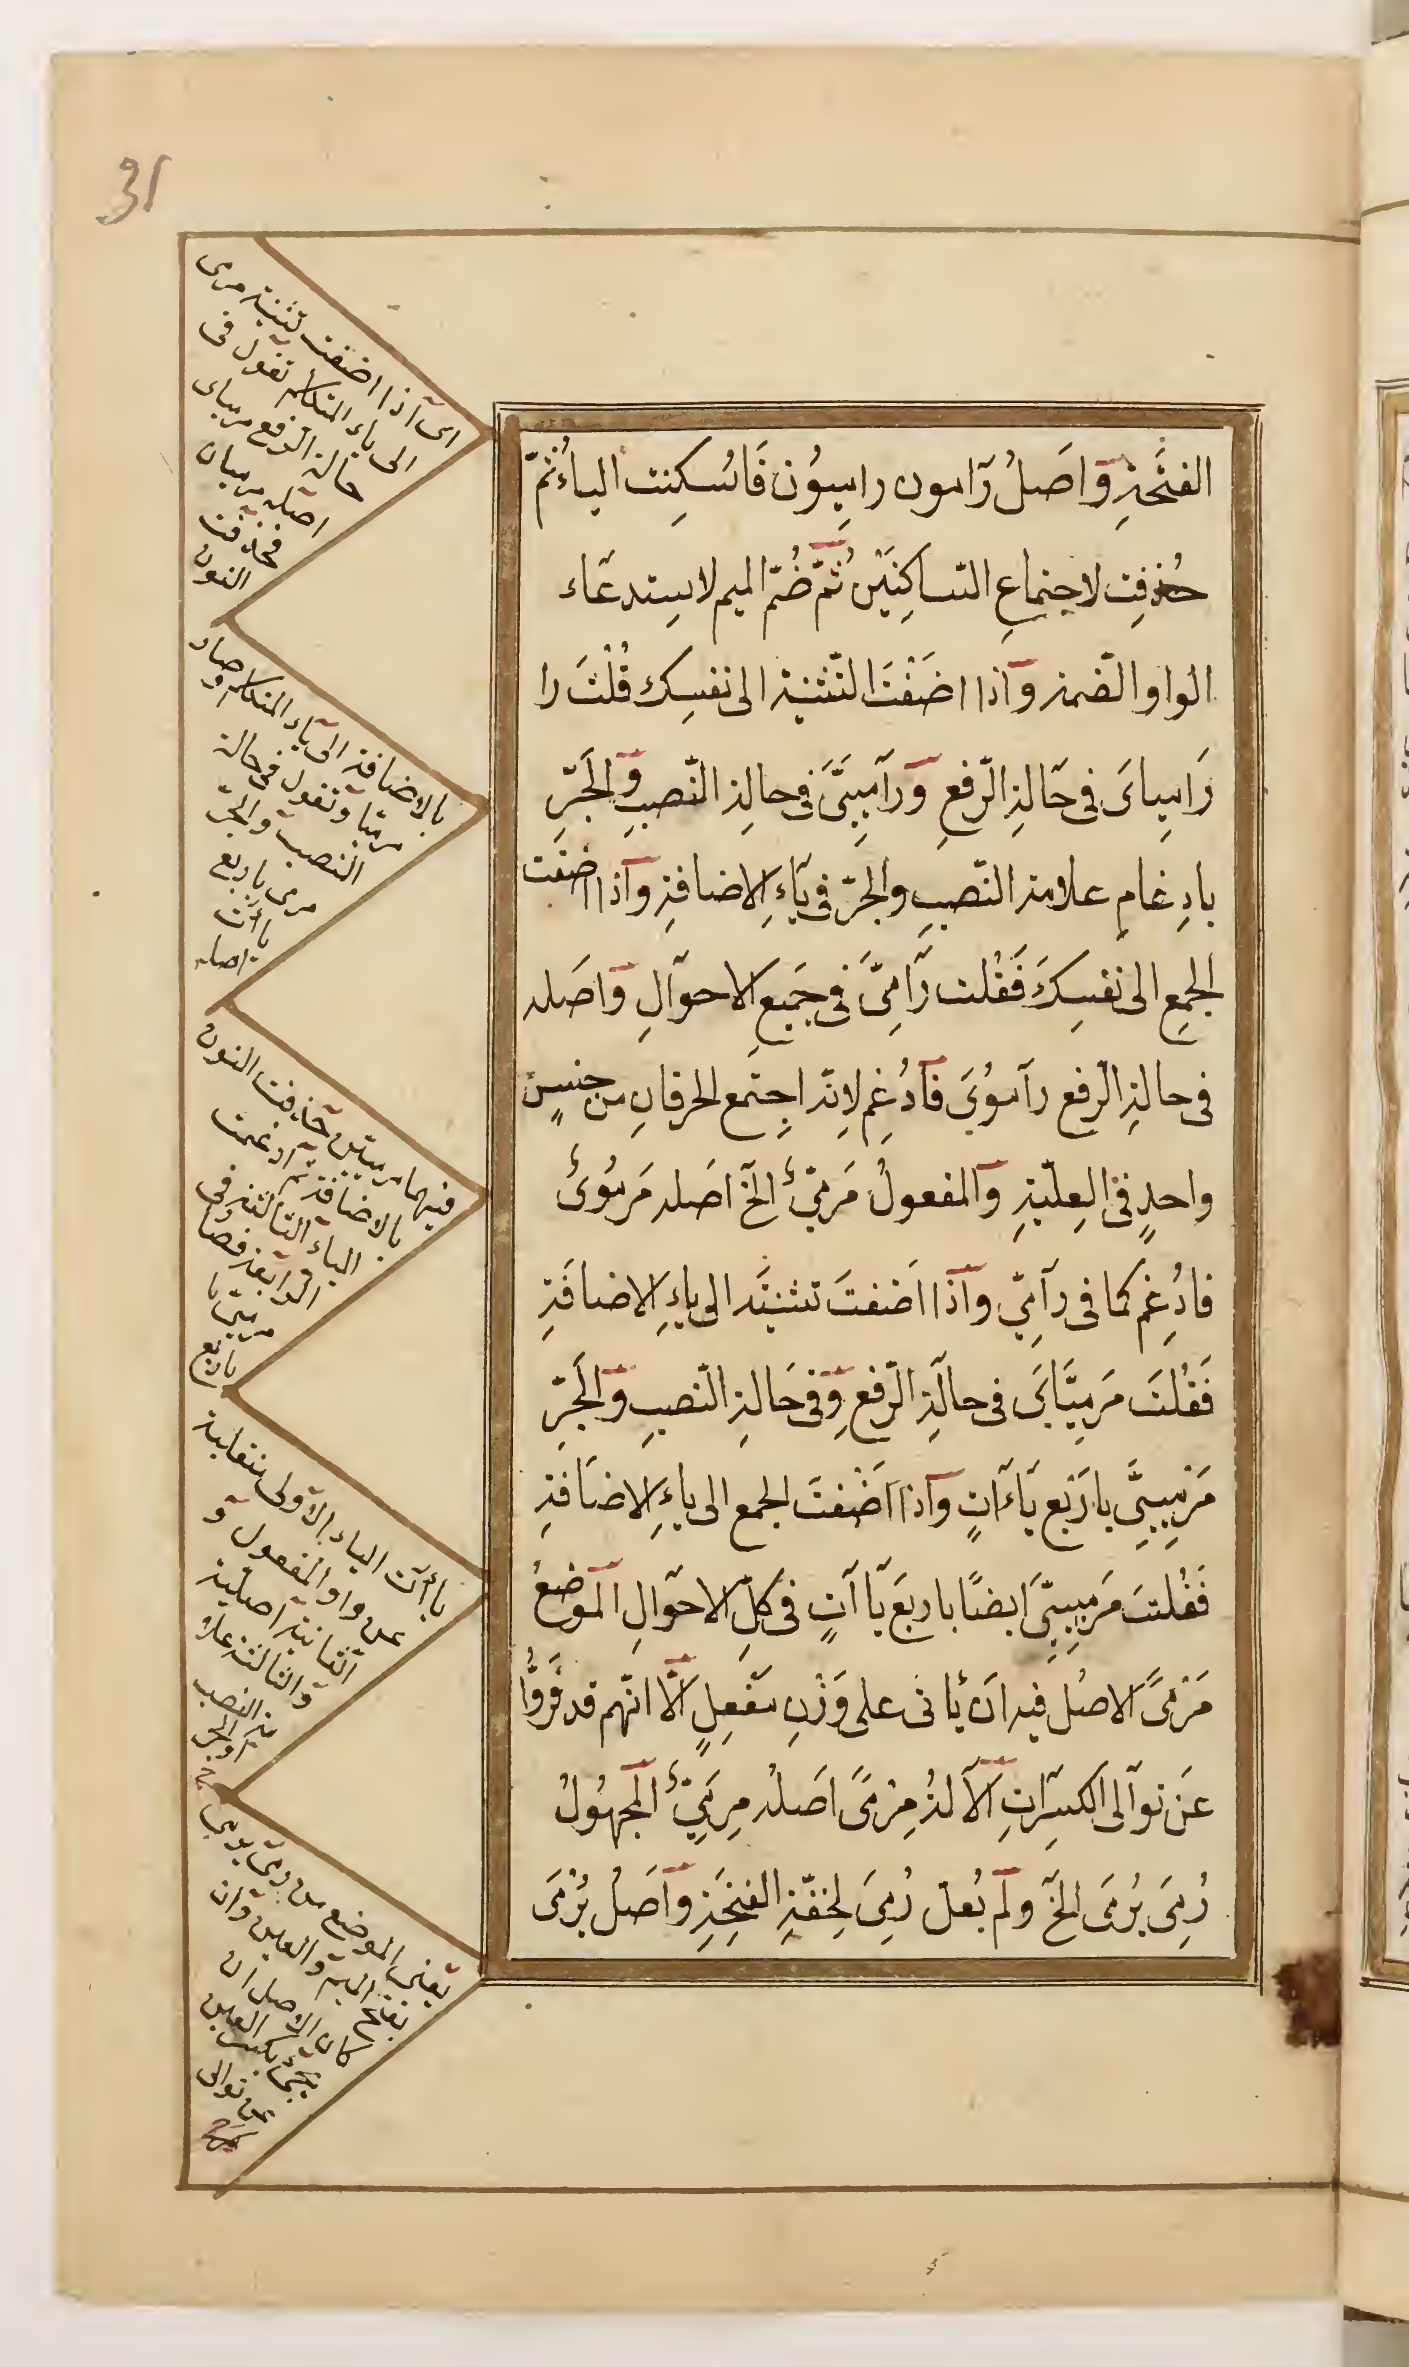 31
الفتحة واصل رامون راميون فاسكنت الياء ثم
حذفت لاجتماع الساكنين ثم ضم الميم لاستدعاء
الواو الضمة واذا اضفت التثنية الى نفسك قلت را
راميای فی حالة الرفع ورامييّ فی حالة النصب والجرّ
بادغام علامة النصب والجرّ فی ياء الاضافة واذا اضفت
الجمع الى نفسك فقلت راميّ فی جميع الاحوال واصله
فی حالة الرفع راموی فادغم لانه اجتمع الحرفان من جنس
واحد فی العلّية والمفعول مرمیّ الخ اصله مرموی
فادغم كما فی رامیّ واذا اضفت تثنيته الى ياء الاضافة
فقلت مرميّای فی حالة الرفع وفی حالة النصب والجرّ
مرمييّ باربع ياءات واذا اضفت الجمع الى ياء الاضافة
فقلت مرمييّ ايضًا باربع ياآت فی كلّ الاحوال الموضع
مرمًی الاصل فيه ان ياتی على وزن مفعل الّا انّهم قد فرّوا
عن توالی الكسرات الآلة مرمًی اصله مرمی المجهول
رمی يرمی الخ ولم يعلّ رمی لخفّة الفتحة واصل يرمی
ای اذا اضفت تثنية مرمی
الى ياء المتكلم تقول فی
حالة الرفع مرميای
اصله مرميان
فحذفت
النون
بالاضافة الى ياء المتكلم وصار
مرميّا وتقول فی حالة
النصب والجرّ
مرمی باربع
ياأت
اصله
فيهما مرميين حذفت النون
بالاضافة ثم ادغمت
الياء الثالثة فی
الرابعة فصا
مرمیّ با
باربع
ياأت الياء الاولى منقلبة
عن واو المفعول و
الثانية اصلية
والثالثة علا
مة النصب
والجر
يعنی الموضع من رمی يرمی
بفتح الميم والعين وان
كان الاصل ان
يجئ بكسر العين
عن توالی